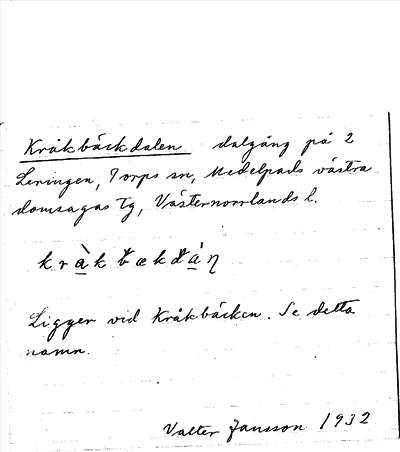 Kråkbäckdalen dalgång på 2
Leringen, Torps sn, Medelpads västra
domsagas tg, Västernorrlands l.
kràkbækdán
Ligger vid Kråkbäcken. Se detta
namn.
Valter Jansson 1932